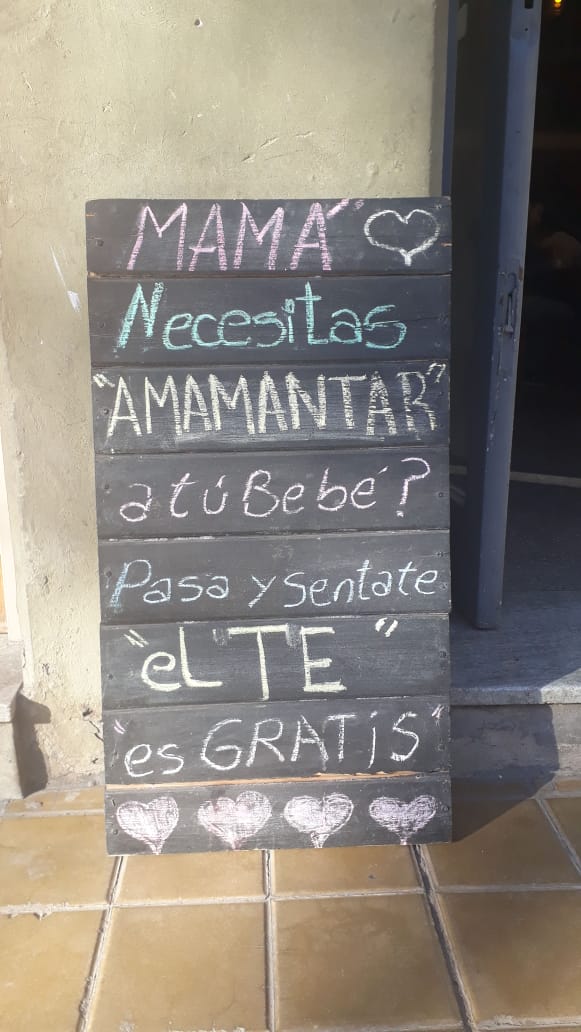 MAMÁ
Necesitas
"AMAMANTAR"
a tú Bebé?
Pasa y sentate
"eL TE"
"es GRATiS"